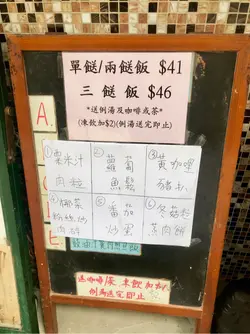 單餸/兩餸飯 $41
三餸飯 $46
*送例湯及咖啡或茶*
(凍飲加$2)(例湯送完即止)
A.
C
E
①粟米汁
肉粒
②蘿蔔
魚鬆
③黃咖哩
豬扒
④椰菜
粉絲炒
肉碎
⑤番茄
炒蛋
⑥冬菇起
蒸肉餅
送咖啡/茶 凍飲加
例湯送完即止